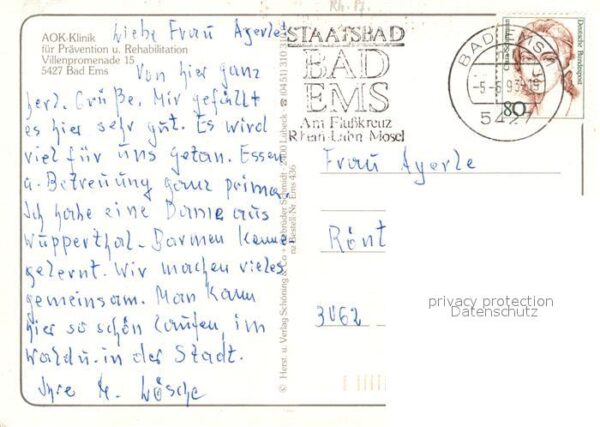 Rh.-Pf.
AOK-Klinik
für Prävention u. Rehabilitation
Villenpromenade 15
5427 Bad Ems
Liebe Frau Ayerle!
Von hier ganz
herz. Grüße. Mir gefällt
es hier sehr gut. Es wird
viel für uns getan. Essen
u. Betreuung ganz prima.
Ich habe eine Dame aus
Wupperthal-Barmen kenne
gelernt. Wir machen vieles
gemeinsam. Man kann
hier so schön laufen, im
Wald u. in der Stadt.
Ihre M. Lösche
© Herst. u. Verlag Schöning & Co + Gebrüder Schmidt · 2400 Lübeck · ☎ (0451) 310 31
Bestell Nr. Ems 436
STAATSBAD
BAD
EMS
Am Flußkreuz
Rhein-Lahn Mosel
BAD EMS 1
-5-6.93
5427
Deutsche Bundespost
80
Frau Ayerle
Rönt
3062
privacy protection
Datenschutz